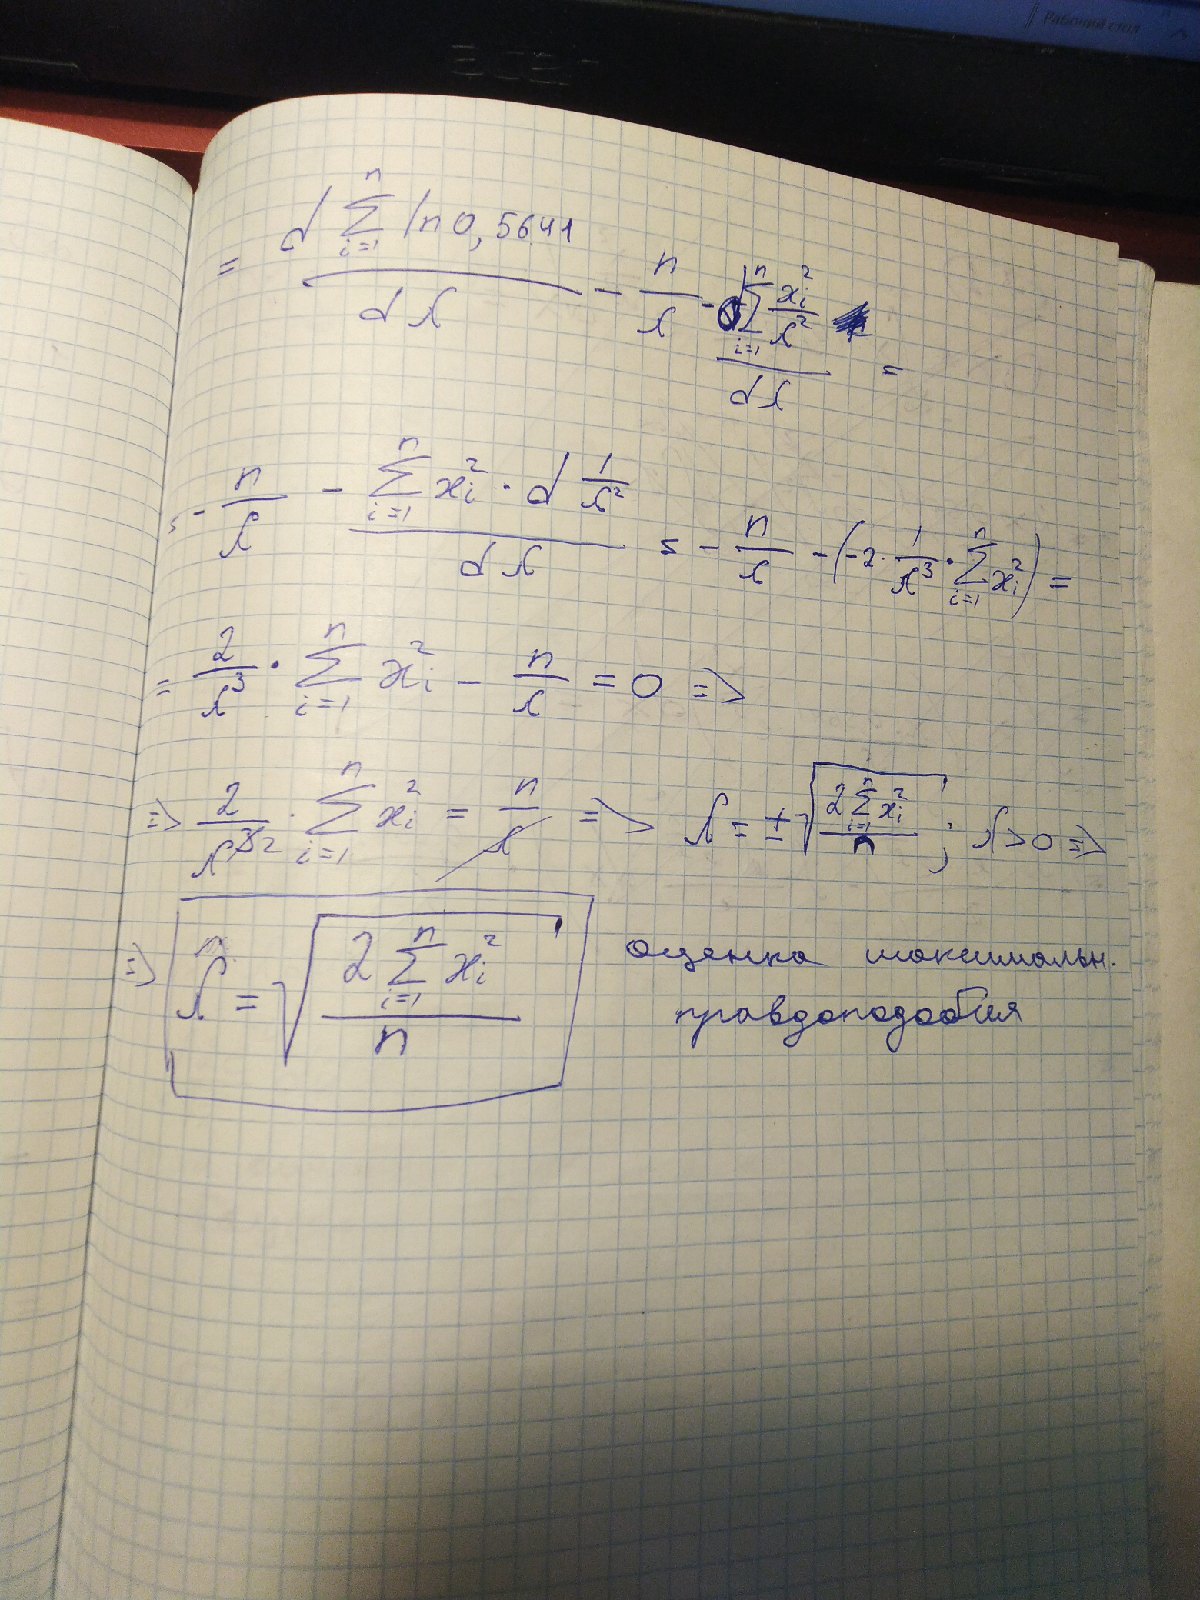 Рабочий стол
= d∑ⁿᵢ₌₁ ln 0,5641 / dλ - n/λ - d∑ⁿᵢ₌₁ xᵢ²/λ² / dλ =
= - n/λ - ∑ⁿᵢ₌₁ xᵢ² · d 1/λ² / dλ = - n/λ - (-2 · 1/λ³ · ∑ⁿᵢ₌₁ xᵢ²) =
= 2/λ³ · ∑ⁿᵢ₌₁ xᵢ² - n/λ = 0 =>
=> 2/λ³² · ∑ⁿᵢ₌₁ xᵢ² = n/λ => λ = ±√(2∑ⁿᵢ₌₁ xᵢ² / n) ; λ > 0 =>
=> λ̂ = √(2∑ⁿᵢ₌₁ xᵢ² / n) оценка максимальн.
правдоподобия